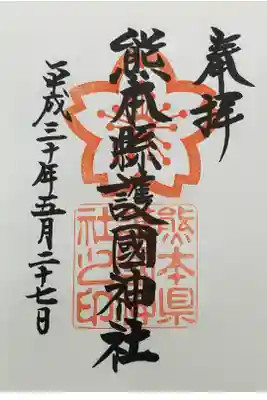 奉拝
熊本縣護國神社
平成三十年五月二十七日
熊本県
社之印